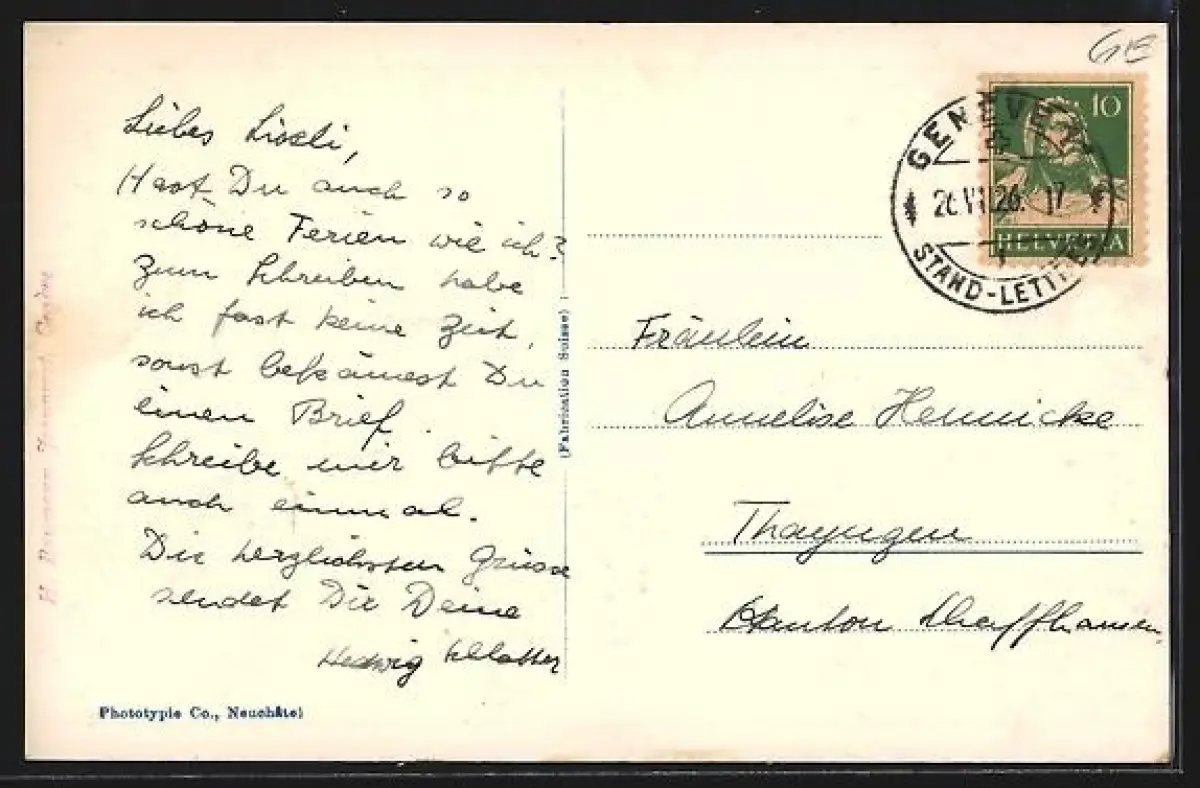 GE
Liebes Liseli,
Hast Du auch so
schöne Ferien wie ich?
Zum Schreiben habe
ich fast keine Zeit,
sonst bekämest Du
einen Brief.
Schreibe mir bitte
auch einmal.
Die herzlichsten Grüsse
sendet Dir Deine
Hedwig Schlatter
Phototypie Co., Neuchâtel
(Fabrication Suisse)
10
HELVETIA
GENÈVE 1
26.VII.26. 17
STAND-LETTRES
Fräulein
Annelise Hennicke
Thayngen
Kanton Schaffhausen